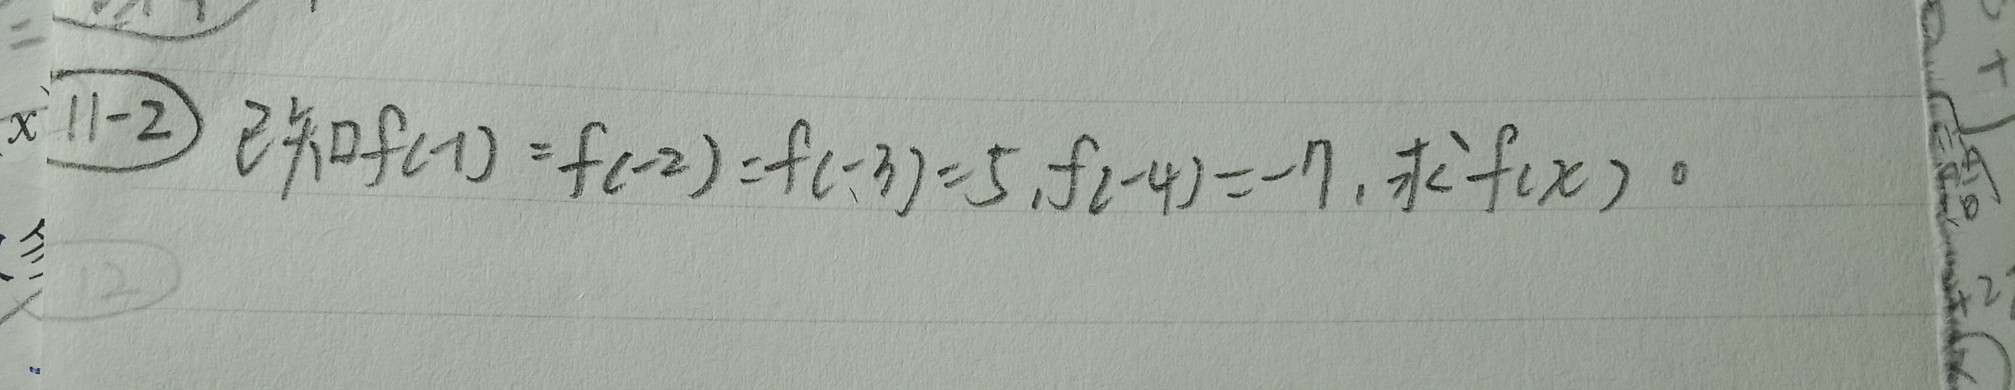 11-2 已知f(-1)=f(-2)=f(-3)=5,f(-4)=-7,求f(x)。
12